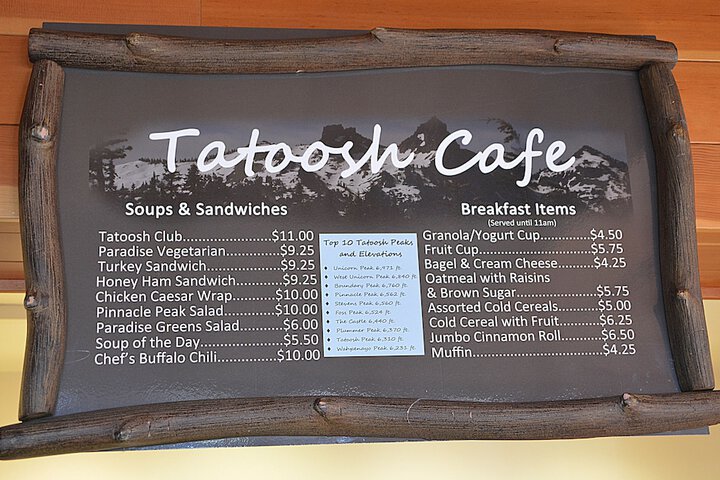 Tatoosh Cafe
Soups & Sandwiches
Tatoosh Club....................$11.00
Paradise Vegetarian............$9.25
Turkey Sandwich................$9.25
Honey Ham Sandwich.........$9.25
Chicken Caesar Wrap.........$10.00
Pinnacle Peak Salad...........$10.00
Paradise Greens Salad.........$6.00
Soup of the Day..................$5.50
Chef's Buffalo Chili.............$10.00
Top 10 Tatoosh Peaks
and Elevations
♦ Unicorn Peak 6,971 ft.
♦ West Unicorn Peak 6,840 ft.
♦ Boundary Peak 6,760 ft.
♦ Pinnacle Peak 6,562 ft.
♦ Stevens Peak 6,560 ft.
♦ Foss Peak 6,524 ft.
♦ The Castle 6,440 ft.
♦ Plummer Peak 6,370 ft.
♦ Tatoosh Peak 6,310 ft.
♦ Wahpenayo Peak 6,231 ft.
Breakfast Items
(Served until 11am)
Granola/Yogurt Cup.............$4.50
Fruit Cup..........................$5.75
Bagel & Cream Cheese........$4.25
Oatmeal with Raisins
& Brown Sugar..................$5.75
Assorted Cold Cereals.........$5.00
Cold Cereal with Fruit..........$6.25
Jumbo Cinnamon Roll.........$6.50
Muffin..............................$4.25